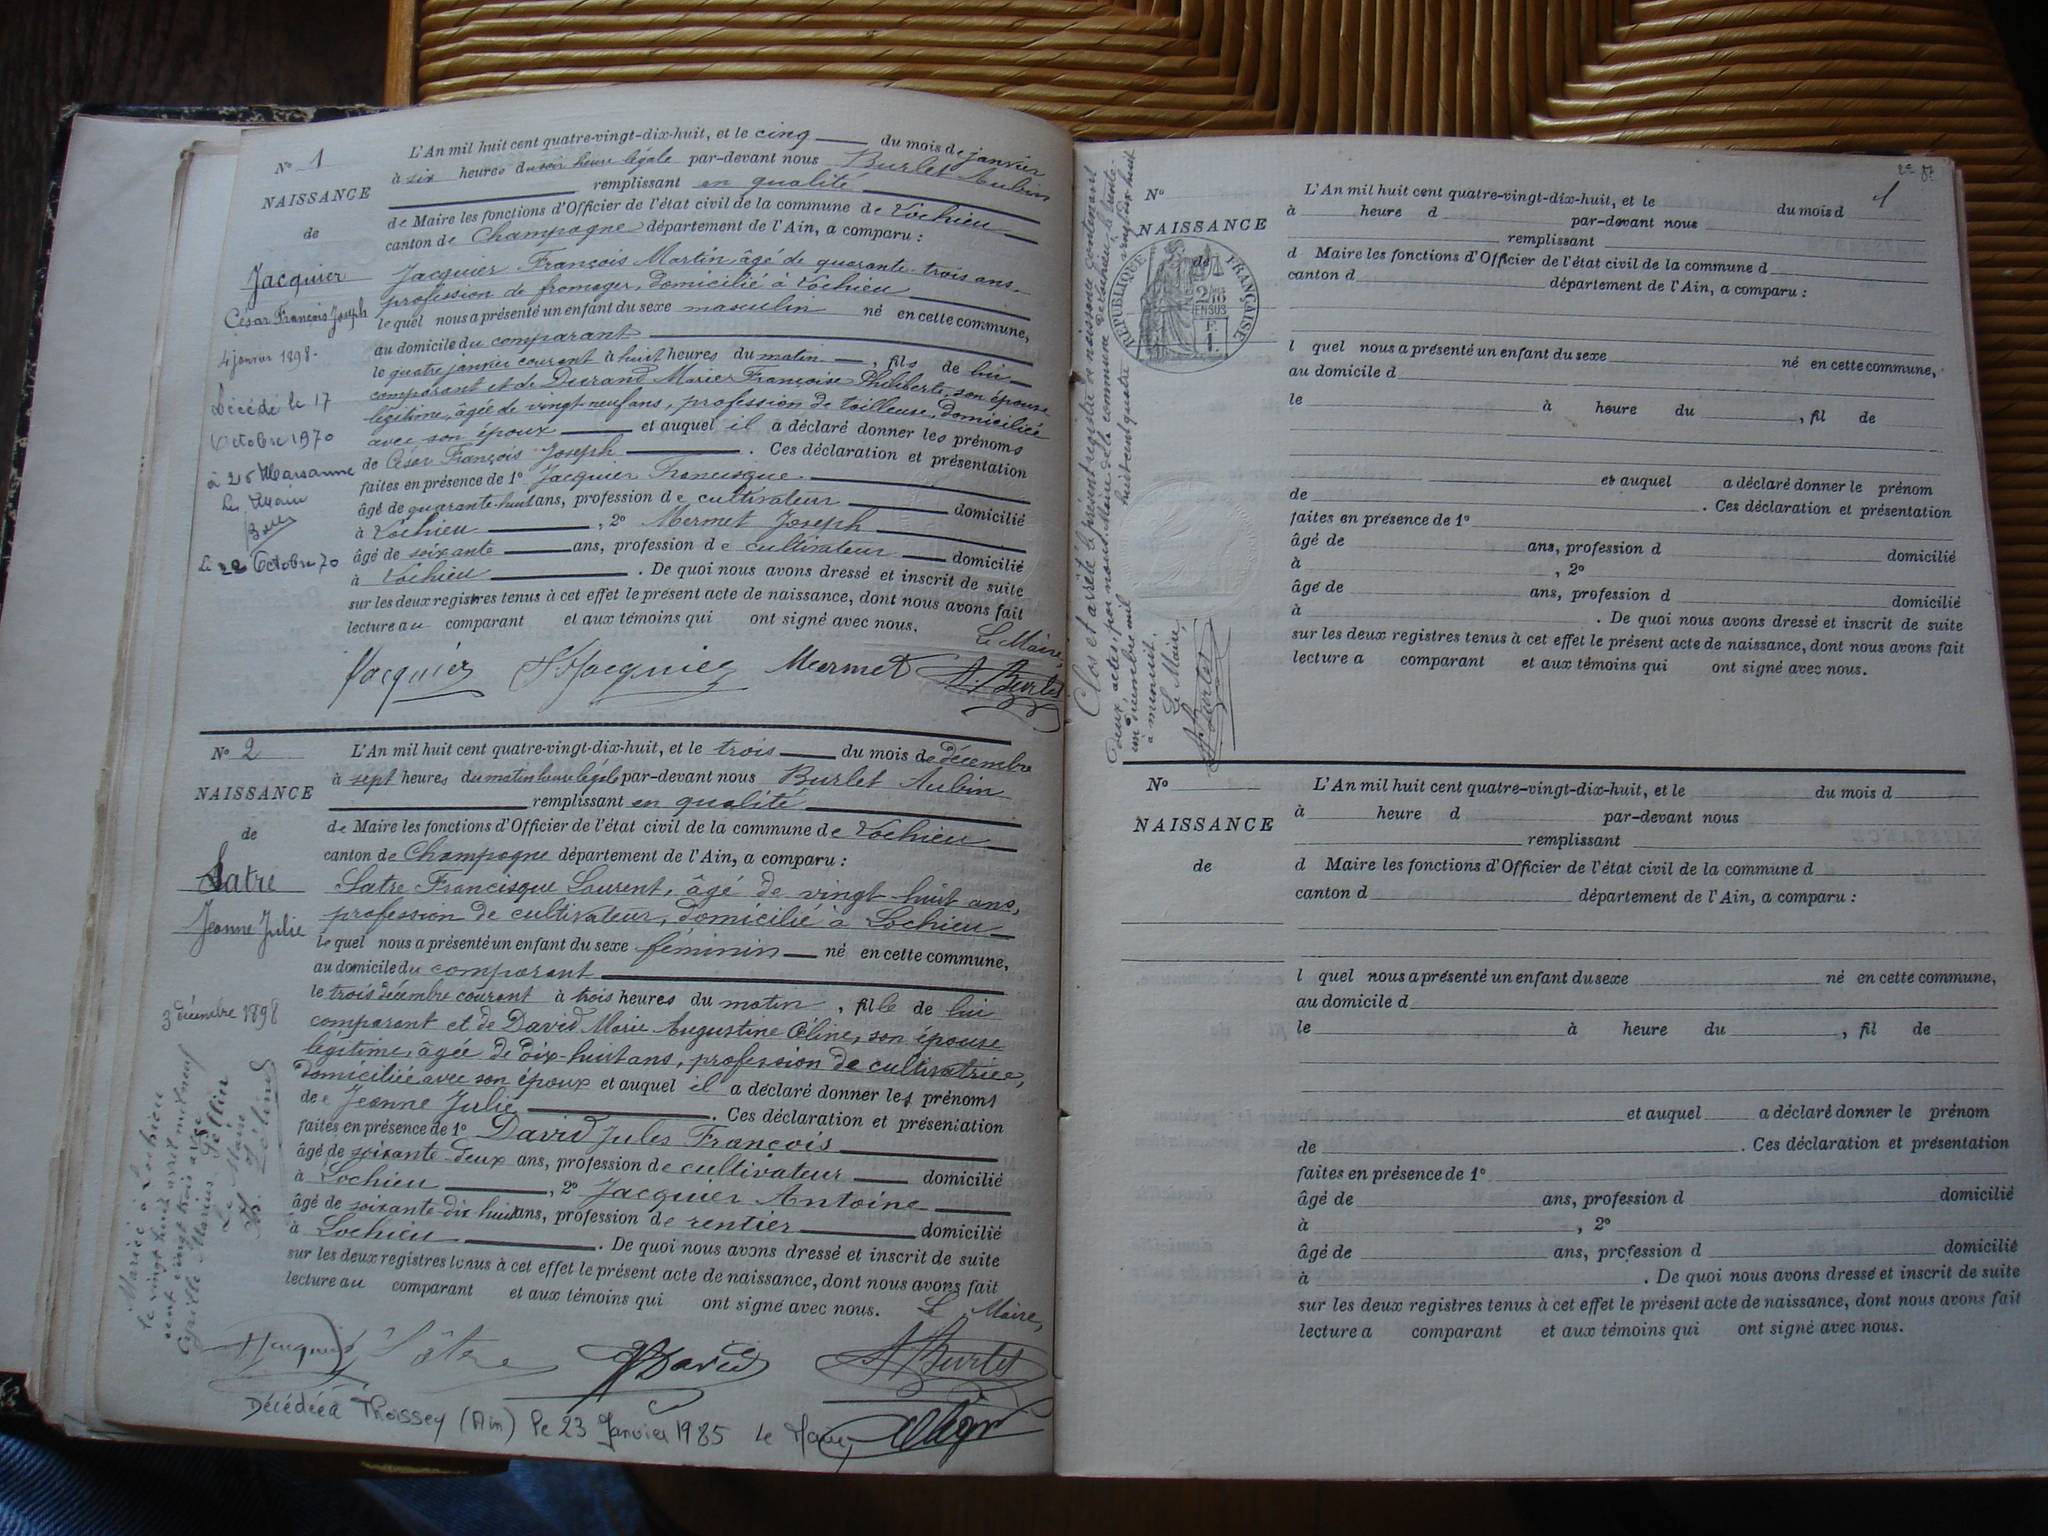 N° 1
NAISSANCE
de
Jacquier
César François Joseph
4 janvier 1898.
Décédé le 17
Octobre 1970
à 26 Marsanne
Le Maire
Le 22 Octobre 70
L'An mil huit cent quatre-vingt-dix-huit, et le cinq du mois de janvier
à six heures du soir heure légale par-devant nous Burlet Aubin
remplissant en qualité
de Maire les fonctions d'Officier de l'état civil de la commune de Lochieu
canton de Champagne département de l'Ain, a comparu :
Jacquier François Martin âgé de quarante-trois ans,
profession de fromager, domicilié à Lochieu
le quel nous a présenté un enfant du sexe masculin né en cette commune,
au domicile du comparant
le quatre janvier courant à huit heures du matin, fils de lui
comparant et de Durand Marie Françoise Philiberte, son épouse
légitime, âgée de vingt-neuf ans, profession de tailleuse, domiciliée
avec son époux et auquel il a déclaré donner les prénoms
de César François Joseph. Ces déclaration et présentation
faites en présence de 1° Jacquier Francisque
âgé de quarante-huit ans, profession de cultivateur domicilié
à Lochieu, 2° Mermet Joseph
âgé de soixante ans, profession de cultivateur domicilié
à Lochieu. De quoi nous avons dressé et inscrit de suite
sur les deux registres tenus à cet effet le présent acte de naissance, dont nous avons fait
lecture au comparant et aux témoins qui ont signé avec nous.
Le Maire,
Jacquier Jacquier Mermet A. Burlet
N° 2
NAISSANCE
de
Satre
Jeanne Julie
3 décembre 1898
Mariée à Lochieu
le vingt huit avril mil neuf
cent vingt trois avec
Cyrille Marius
Le Maire
L'An mil huit cent quatre-vingt-dix-huit, et le trois du mois de décembre
à sept heures du matin heure légale par-devant nous Burlet Aubin
remplissant en qualité
de Maire les fonctions d'Officier de l'état civil de la commune de Lochieu
canton de Champagne département de l'Ain, a comparu :
Satre Francisque Laurent, âgé de vingt-huit ans,
profession de cultivateur, domicilié à Lochieu
le quel nous a présenté un enfant du sexe féminin né en cette commune,
au domicile du comparant
le trois décembre courant à trois heures du matin, fille de lui
comparant et de David Marie Augustine Céline, son épouse
légitime, âgée de dix-huit ans, profession de cultivatrice,
domiciliée avec son époux et auquel il a déclaré donner les prénoms
de Jeanne Julie. Ces déclaration et présentation
faites en présence de 1° David Jules François
âgé de soixante-deux ans, profession de cultivateur domicilié
à Lochieu, 2° Jacquier Antoine
âgé de soixante-dix huit ans, profession de rentier domicilié
à Lochieu. De quoi nous avons dressé et inscrit de suite
sur les deux registres tenus à cet effet le présent acte de naissance, dont nous avons fait
lecture au comparant et aux témoins qui ont signé avec nous. Le Maire,
Jacquier Satre David A Burlet
Décédée à Thoissey (Ain) le 23 Janvier 1985 Le Maire,
1
Clos et arrêté le présent registre de naissance contenant
deux actes, par nous, Maire de la commune de Lochieu, le trente-
un décembre mil huit cent quatre vingt dix huit
à minuit.
Le Maire,
A. Burlet
RÉPUBLIQUE FRANÇAISE
N°
NAISSANCE
de
L'An mil huit cent quatre-vingt-dix-huit, et le du mois d
à heure d par-devant nous
remplissant
d Maire les fonctions d'Officier de l'état civil de la commune d
canton d département de l'Ain, a comparu :
l quel nous a présenté un enfant du sexe né en cette commune,
au domicile d
le à heure du , fil de
et auquel a déclaré donner le prénom
de . Ces déclaration et présentation
faites en présence de 1°
âgé de ans, profession d domicilié
à , 2°
âgé de ans, profession d domicilié
à . De quoi nous avons dressé et inscrit de suite
sur les deux registres tenus à cet effet le présent acte de naissance, dont nous avons fait
lecture a comparant et aux témoins qui ont signé avec nous.
N°
NAISSANCE
de
L'An mil huit cent quatre-vingt-dix-huit, et le du mois d
à heure d par-devant nous
remplissant
d Maire les fonctions d'Officier de l'état civil de la commune d
canton d département de l'Ain, a comparu :
l quel nous a présenté un enfant du sexe né en cette commune,
au domicile d
le à heure du , fil de
et auquel a déclaré donner le prénom
de . Ces déclaration et présentation
faites en présence de 1°
âgé de ans, profession d domicilié
à , 2°
âgé de ans, profession d domicilié
à . De quoi nous avons dressé et inscrit de suite
sur les deux registres tenus à cet effet le présent acte de naissance, dont nous avons fait
lecture a comparant et aux témoins qui ont signé avec nous.